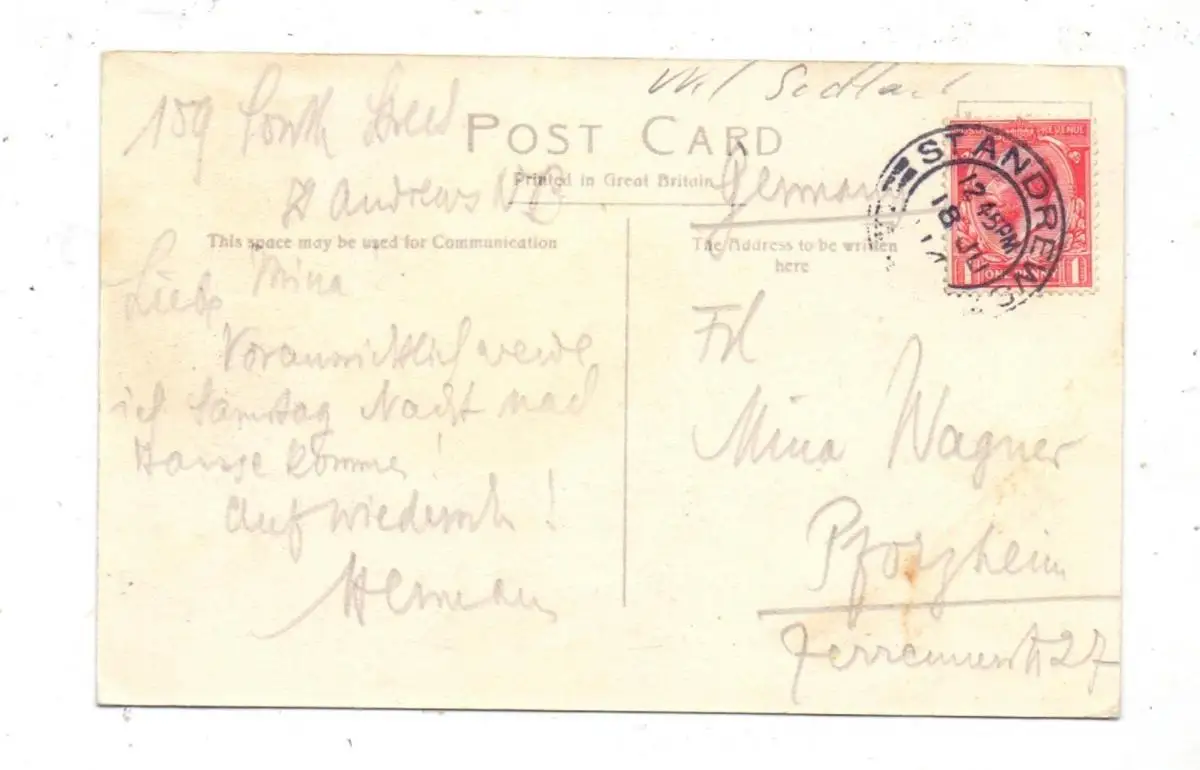 159 South Street
St Andrews N.B.
Liebe Mina
Voraussichtlich werde
ich Samstag Nacht nach
Hause kommen!
Auf Wiedersehn!
Hermann
POST CARD
Printed in Great Britain
This space may be used for Communication
The Address to be written
here
Germany
Frl
Mina Wagner
Pforzheim
27
ST ANDREWS
12 45PM
18 JU
POSTAGE REVENUE
1 ONE PENNY 1